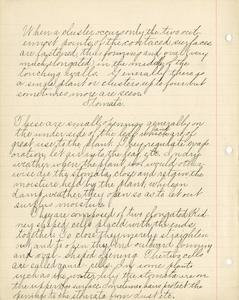 When a cluster occurs only the two out-
ermost points of the contaced surfaces
are fastened, thus forming one oval, very
much elongated, in the middle of the
touching walls. Generally there is
a single plant or clusters up to four but
sometimes more are seen.
Stomata
These are small openings generally on
the under side of the leaf which are of
great use to the plant. They regulate evap-
oration, let air into the leaf etc. In dry
weather where the plant would other-
wise dry the stomata close and retain the
moisture held by the plant, while in
damp weather they open so as to let out
surplus moisture.
They are composed of two elongated kid-
ney shaped cells placed with the ends
together. To close they merely straighten
out and to open they bend outward forming
an oval shaped opening. These two cells
are called guard cells. In some plants
such as the water lily the stomata are on
the upper surface. Sometimes hairs protect the
openings to the stomata from dust etc.